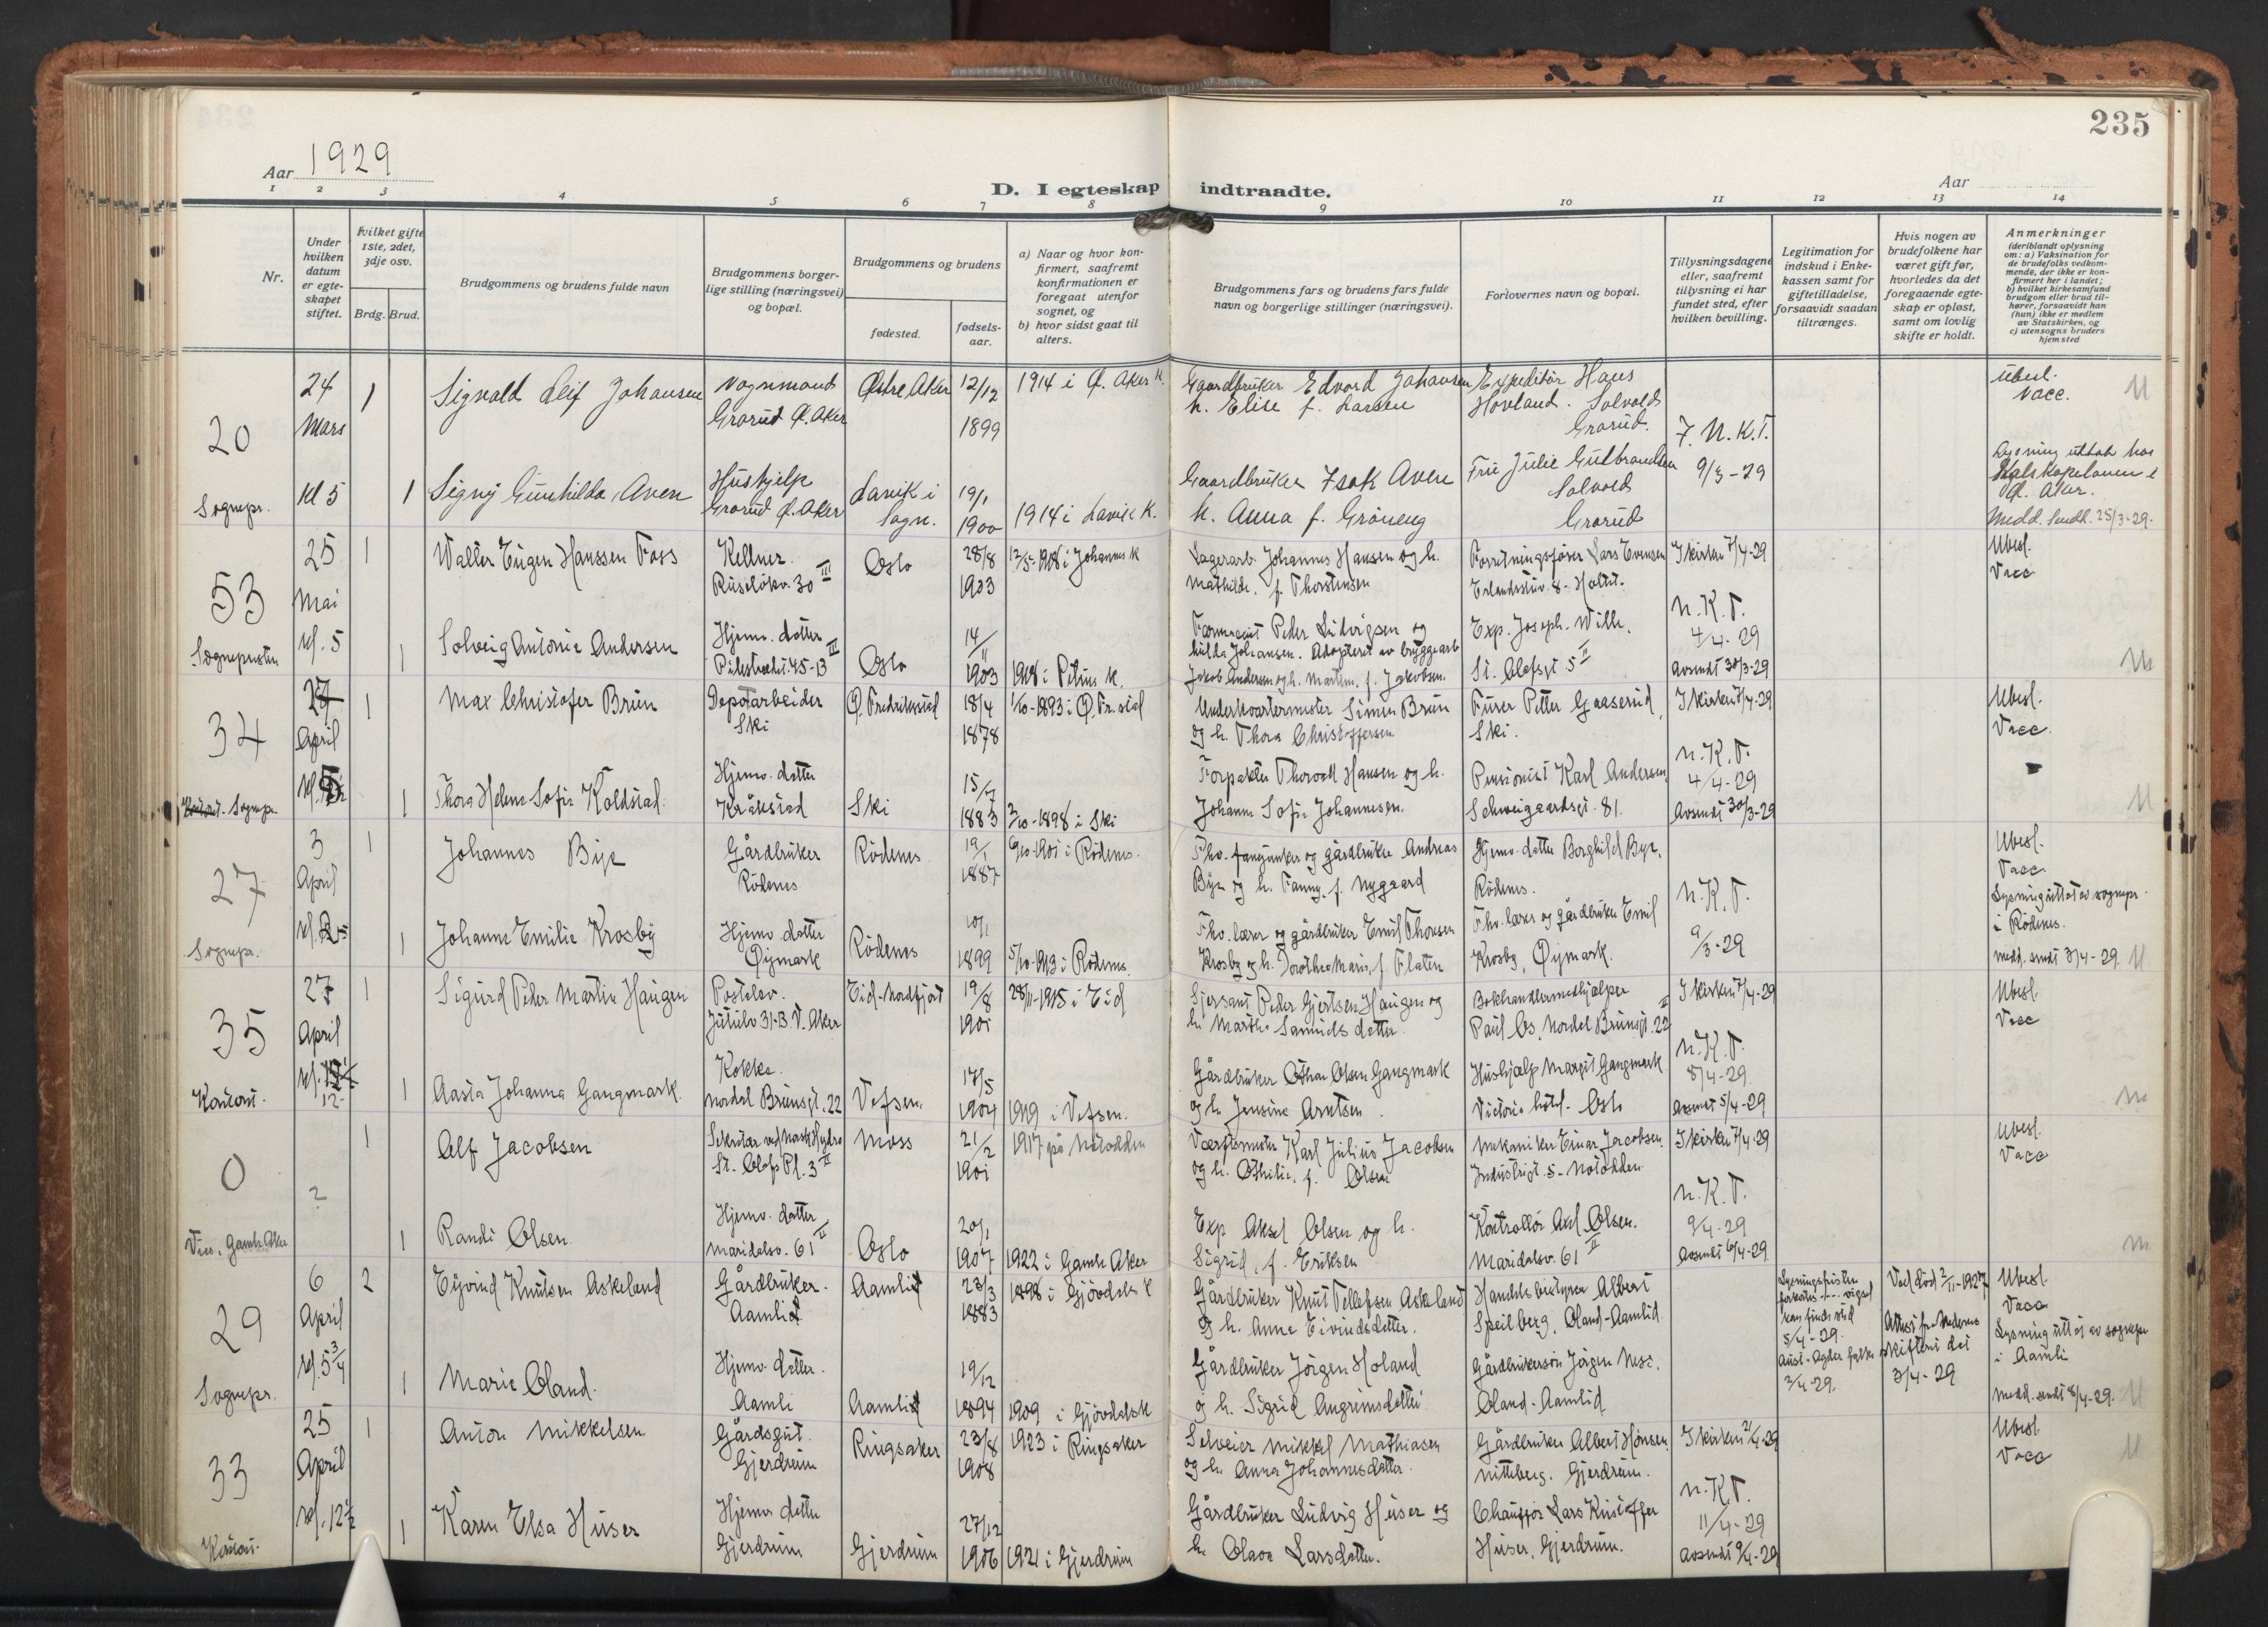 235
Aar 1929
D. I egteskap indtraadte.
Aar
1 2 3 4 5 6 7 8 9 10 11 12 13 14
Nr.
Under hvilken datum er egteskapet stiftet.
Hvilket gifte 1ste, 2det, 3dje osv.
Brdg. Brud.
Brudgommens og brudens fulde navn
Brudgommens borgerlige stilling (næringsvei) og bopæl.
Brudgommens og brudens
fødested.
fødselsaar.
a) Naar og hvor konfirmert, saafremt konfirmationen er foregaat utenfor sognet, og
b) hvor sidst gaat til alters.
Brudgommens fars og brudens fars fulde navn og borgerlige stillinger (næringsvei).
Forlovernes navn og bopæl.
Tillysningsdagene eller, saafremt tillysning ei har fundet sted, efter hvilken bevilling.
Legitimation for indskud i Enkekassen samt for giftetilladelse, forsaavidt saadan tiltrænges.
Hvis nogen av brudefolkene har været gift før, hvorledes da det foregaaende egteskap er opløst, samt om lovlig skifte er holdt.
Anmerkninger
(deriblandt oplysning om: a) Vaksination for de brudefolks vedkommende, der ikke er konfirmert her i landet; b) hvilket kirkesamfund brudgom eller brud tilhører, forsaavidt han (hun) ikke er medlem av Statskirken, og c) utensogns bruders hjemsted
20
24 Mars kl 5
Sognepr.
1 Sigvald Leif Johansen
Vognmand
Grorud Ø. Aker
Østre Aker
12/12 1899
1914 i Ø. Aker K.
Gaardbruker Edvard Johansen
h. Elise f. Larsen
Expeditør Hans
Hovland. Solvold
Grorud.
F. N.K.T.
9/3-29
Ubesl.
Vacc.
1 Signy Gunhilda Aven
Hushjelp
Grorud Ø. Aker
Lavik i
Sogn.
19/1 1900
1914 i Lavik K.
Gaardbruker Isak Aven
h. Anna f. Grøneng
Fru Julie Gulbrandsen
Solvold
Grorud
Lysning uttat hos
Ø. Aker.
Medd. sendt 25/3-29.
53
25 Mai kl. 5
Sognepresten
1 Walter Eugen Hanssen Foss
Kellner.
Ruseløkv. 30 III
Oslo
28/8 1903
12/5-1918 i Johannes K
Lagerarb. Johannes Hansen og h.
Mathilde. f. Thorstensen
Forretningsfører Lars Evensen
Erlandsstuv. 8 - Holtet.
I kirken 7/4-29
N.K.T.
4/4-29
Avsendt 30/3-29
Ubesl.
Vacc
1 Solveig Antonie Andersen
Hjemv. datter
Pilestrædet. 45-B III
Oslo
14/11 1903
1918 i Petrus K.
Peder Ludvigsen og
Hulda Johansen. Adopteret av bryggearb
Jakob Andersen og h. Martine. f. Jakobsen.
Exp. Joseph. Wilh.
St. Olafsgt 5 II
34
27 April kl. 5
Sognepr.
1 Max Christofer Brun
Depotarbeider
Ski
Ø. Fredrikstad
18/4 1878
1/10-1893 i Ø. Fr.stad
Underkvartermester Simen Brun
og h. Thora Christoffersen
Furer Petter Gaaserud,
Ski.
I kirken 7/4-29
N.K.T.
4/4-29
Avsendt 30/3-29
Ubesl.
Vacc.
1 Thora Helene Sofie Koldstad
Hjemv. datter
Kråkstad
Ski
15/7 1883
2/10-1898 i Ski
Forpakter Thorvald Hansen og h.
Johanne Sofie Johannesen.
Pensionist Karl Andersen
Schweigaardsgt. 81.
27
3 April
Sognepr.
1 Johannes Bye
Gårdbruker
Rødenes
Rødenes
19/1 1887
6/10-1901 i Rødenes.
Fhv. fanejunker og gårdbruker Andreas
Bye og h. Fanny. f. Nygaard
Hjemv. datter Borghild Bye.
Rødenes.
N.K.T.
9/3-29
Ubesl.
Vacc.
Lysning uttat av sognepr.
i Rødenes.
medd. sendt 3/4-29.
1 Johanne Emilie Krosby
Hjemv. datter
Øymark
Rødenes
10/1 1899
5/10-1913 i Rødenes.
Fhv. lærer og gårdbruker Emil Thoresen
Krosby og h. Dorothea Marie, f. Flaten
Fhv. lærer og gårdbruker Emil
Krosby, Øymark.
35
27 April
12-
Kontoret.
1 Sigurd Peder Martin Haugen
Postelev.
Jutulv 31-B. V. Aker
Eid-Nordfjord
19/8 1901
28/11-1915 i Eid
Sjersant Peder Gjertsen Haugen og
h. Marthe Samuelsdatter.
Bokhandlermedhjælper
Paul Os, Nordal Brunsgt. 22 II
I kirken 7/4-29
N.K.T.
8/4-29.
Avsendt 5/4-29
Ubesl.
Vacc
1 Aasta Johanna Gangmark.
Kokke.
Nordal Brunsgt. 22
Vefsen.
17/5 1904
1919 i Vefsen.
Gårdbruker Olsen Gangmark
og h. Jensine Arntsen.
Hushjælp Margit Gangmark
Victoria hotel - Oslo
0
?
Viet i Gamle Aker
1 Alf Jacobsen
Sekretær ved Norsk Hydro
St. Olafs Pl. 3 II
Moss
21/2 1901
1917 på Notodden
Værksmester Karl Julius Jacobsen
og h. Othilie. f. Olsen
Mekaniker Einar Jacobsen.
Industrigt. 5 - Notodden.
I kirken 7/4-29
N.K.T.
9/4-29
Avsendt 6/4-29
Ubesl.
Vacc
1 Randi Olsen.
Hjemv. datter
Maridalsv. 61 II
Oslo
20/1 1907
1922 i Gamle Aker
Exp Aksel Olsen og h.
Sigrid, f. Eriksen
Kontrollør Axel Olsen.
Maridalsv. 61 II
29
6 April kl. 5 3/4
Sognepr.
2 Eyvind Knutsen Askeland
Gårdbruker.
Aamli
Aamli
23/3 1883
1898 i Gjövdals K
Gårdbruker Knut Tellefsen Askeland
og h. Anne Eivindsdatter.
Handelsbestyrer Albert
Speilberg, Oland-Aamlid.
Lysningsfristen
forkortes --- vigsel
kan finde sted
5/4-29.
Aust-Agder fylke
2/4-29.
Ved død 2/11-1927
Attest fra Nedenes
skifteret dat
3/4-29
Ubesl.
Vacc
Lysning uttat av sognepr
i Aamli
Medd. sendt 8/4-29.
1 Marie Oland.
Hjemv. datter.
Aamli
Aamli
19/12 1894
1909 i Gjövdalsk
Gårdbruker Jörgen Holand
og h. Sigrid Angrimsdatter.
Gårdbrukersön Jörgen Ness.
Oland-Aamlid
33
25 April kl. 12 1/2
Kontoret.
1 Anton Mikkelsen.
Gårdsgut.
Gjerdrum
Ringsaker
23/8 1908
1923 i Ringsaker
Selveier Mikkel Mathiasen
og h. Anna Johannesdatter.
Gårdbruker Albert Hønsen
Nitteberg. Gjerdrum.
I kirken 21/4-29
N.K.T.
11/4-29
Avsendt 9/4-29
Ubesl.
Vacc
1 Karen Elsa Huser
Hjemv datter
Gjerdrum
Gjerdrum
27/12 1906
1921 i Gjerdrum
Gårdbruker Ludvig Huser og
h. Olava Larsdatter.
Chauffør Lars Kristoffer
Huser, Gjerdrum.